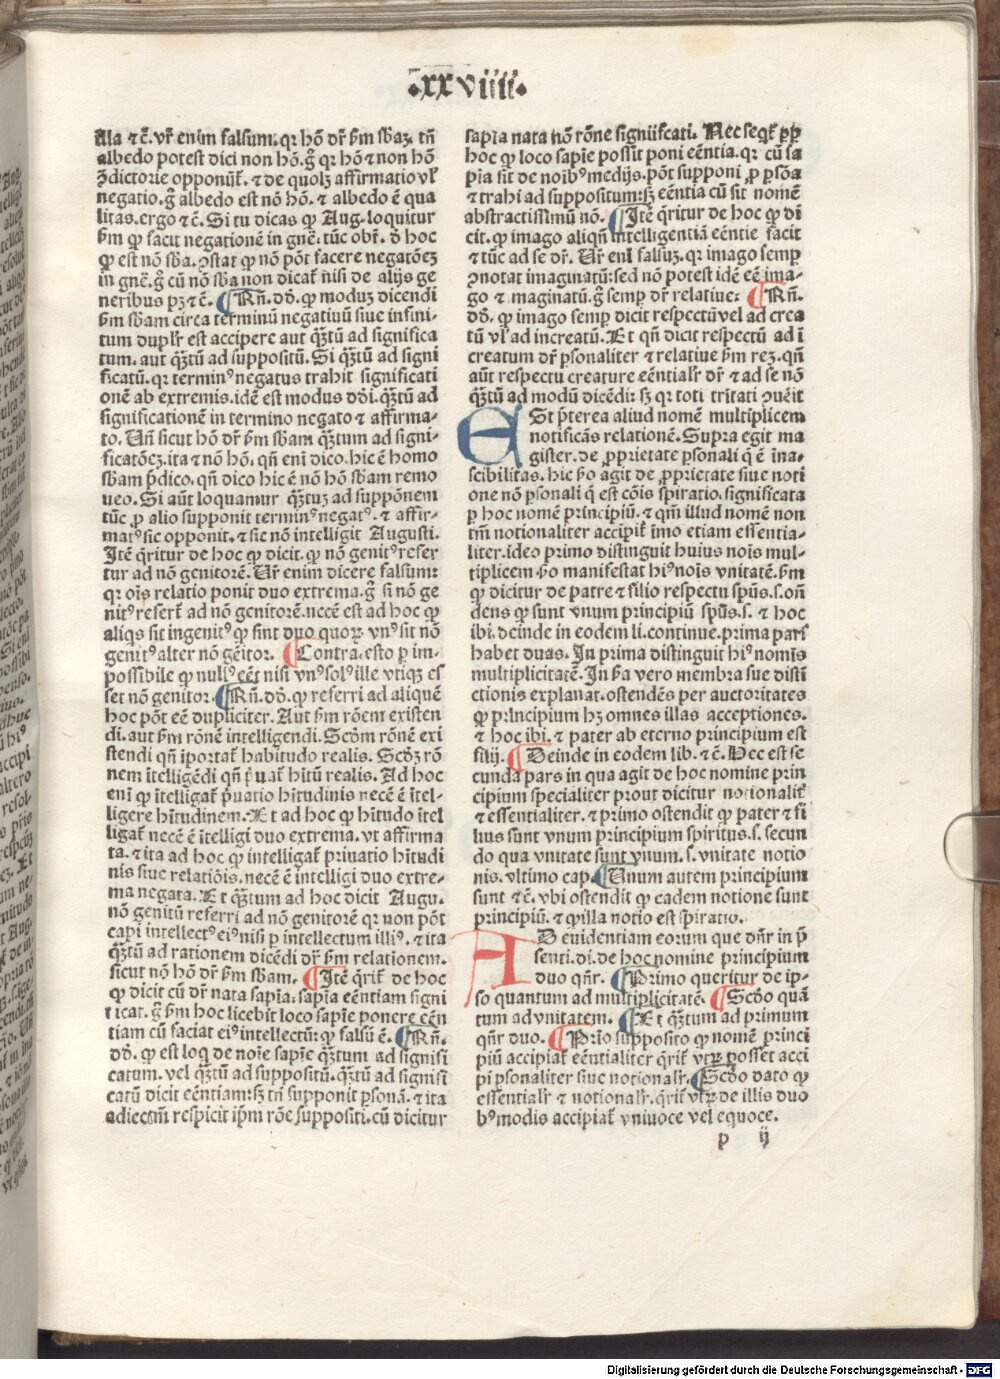 .xxviiii.
illa ⁊ c̄. vr̄ enim falsum. qꝛ hō dr̄ ẜm sb̄aꝫ. tn̄
albedo potest dici non hō. ḡ qꝛ hō ⁊ non hō
ꝯdictorie opponūt̄. ⁊ de quolꝫ affirmatio vl̄
negatio. ḡ albedo est nō hō. ⁊ albedo ē qua
litas. ergo ⁊ c̄. Si tu dicas ꝙ Aug. loquitur
ẜm ꝙ facit negationē in gn̄e. tūc obr̄. ꝺ hoc
ꝙ est nō sb̄a. ꝯstat ꝙ nō pōt facere negatōeꝫ
in gn̄e. ḡ cū nō sb̄a non dicat̄ nisi de alijs ge
neribus pꝫ ⁊ c̄. Rn̄. dō. ꝙ modus dicendi
ẜm sb̄am circa terminū negatiuū siue infini-
tum duplr̄ est accipere aut qꝫtū ad significa
tum. aut qꝫtū ad suppositū. Si qꝫtū ad signi
ficatū. qꝛ terminꝰ negatus trahit significati
onē ab extremis. idē est modus dōi. qꝫtū ad
significationē in termino negato ⁊ affirma-
to. Vn̄ sicut hō dr̄ ẜm sb̄am qꝫtum ad signi-
ficatōeꝫ. ita ⁊ nō hō. qn̄ eni dico. hic ē homo
sb̄am p̄dico. qn̄ dico hic ē nō hō sb̄am remo
ueo. Si aūt loquamur qꝫtuꝫ ad suppōnem
tūc ꝓ alio supponit terminꝰ negatꝰ. ⁊ affir-
matꝰ sic opponit. ⁊ sic nō intelligit Augusti.
Itē q̄ritur de hoc ꝙ dicit. ꝙ nō genitꝰ refer
tur ad nō genitorē. Vr̄ enim dicere falsum:
qꝛ oīs relatio ponit duo extrema. ḡ si nō ge
nitꝰ refert̄ ad nō genitorē. necē est ad hoc ꝙ
aliqs sit ingenitꝰ ꝙ sint duo quoꝝ. vnꝰ sit nō
genitꝰ alter nō gēitor. Contra. esto ꝑ im-
possibile ꝙ nulꝰ eēt nisi vnꝰ solꝰ ille vtiqꝫ es
set nō genitor. Rn̄. dō. ꝙ referri ad aliquē
hoc pōt eē dupliciter. Aut ẜm rōem existen
di. aut ẜm rōnē intelligendi. Scdm rōnē exi
stendi qn̄ iportat̄ habitudo realis. Scdꝫ rō
nem ītelligēdi qn̄ p̄uat̄ hītū realis. Ad hoc
enī ꝙ ītelligat̄ p̄uatio hītudinis necē ē ītel-
ligere hītudinem. Et ad hoc ꝙ hītudo ītel
ligat̄ necē ē ītelligi duo extrema. vt affirma
ta. ⁊ ita ad hoc ꝙ intelligat̄ priuatio hītudi
nis siue relatiōis. necē ē intelligi duo extre-
ma negata. Et qꝫtum ad hoc dicit Augu.
nō genitū referri ad nō genitorē qꝛ non pōt
capi intellectꝰ eiꝰ nisi ꝑ intellectum illiꝰ. ⁊ ita
qꝫtū ad rationem dicēdi dr̄ ẜm relationem.
sicut nō hō dr̄ ẜm sb̄am. Itē q̄rit̄ de hoc
ꝙ dicit cū dr̄ nata sapīa. sapīa eēntiam signi
ficat. ḡ ẜm hoc licebit loco sapīe ponere eēn
tiam cū faciat eiꝰ intellectū: ꝙ falsū ē. Rn̄.
dō. ꝙ est loq̄ de noīe sapīe qꝫtum ad signifi
catum. vel qꝫtū ad suppositū. qꝫtū ad signifi
catū dicit eēntiam: sꝫ tn̄ supponit ꝑsonā. ⁊ ita
adiectm̄ respicit ipm̄ rōe suppositi. cū dicitur
sapīa nata nō rōne significati. Nec seqt̄ ꝓp̄
hoc ꝙ loco sapīe possit poni eēntia. qꝛ cū sa
pīa sit de noībꝰ medijs. pōt supponi ꝓ ꝑsōa
⁊ trahi ad suppositum: sꝫ eēntia cū sit nomē
abstractissimū nō. Itē q̄ritur de hoc ꝙ di
cit. ꝙ imago aliqn̄ intelligentiā eēntie facit
⁊ tūc ad se dr̄. Vr̄ enī falsuꝫ. qꝛ imago semꝑ
ꝯnotat imaginatū: sed nō potest idē eē ima-
go ⁊ imaginatū. ḡ semꝑ dr̄ relatiue: Rn̄.
dō. ꝙ imago semꝑ dicit respectū vel ad crea
tū vl̄ ad increatū. Et qn̄ dicit respectū ad ī
creatum dr̄ ꝑsonaliter ⁊ relatiue ẜm reꝫ. qn̄
aūt respectu creature eēntialr̄ dr̄ ⁊ ad se nō
qꝫtū ad modū dicēdi: sꝫ qꝛ toti trītati ꝯuēit
ESt p̄terea aliud nomē multiplicem
notificās relationē. Supra egit ma
gister. de ꝓprietate ꝑsonali q̄ ē ina-
scibilitas. hic ẜo agit de ꝓprietate siue noti
one nō ꝑsonali q̄ est cōis spiratio. significata
ꝑ hoc nomē principiū. ⁊ qm̄ illud nomē non
tm̄ notionaliter accipit̄ īmo etiam essentia-
liter. ideo primo distinguit huius noīs mul-
tiplicem ẜo manifestat hꝰ noīs vnitatē. ẜm
ꝙ dicitur de patre ⁊ filio respectu spūs. s. on̄
dens ꝙ sunt vnum principiū spūs. s. ⁊ hoc
ibi. deinde in eodem li. continue. prima pars
habet duas. In prima distinguit hꝰ nomīs
multiplicitatē. In ẜa vero membra sue disti
ctionis explanat. ostendēs per auctoritates
ꝙ principium hꝫ omnes illas acceptiones.
⁊ hoc ibi. ⁊ pater ab eterno principium est
filij. Deinde in eodem lib. ⁊ c̄. Hec est se
cunda pars in qua agit de hoc nomine prin
cipium specialiter prout dicitur notionalit̄
⁊ essentialiter. ⁊ primo ostendit ꝙ pater ⁊ fi
lius sunt vnum principium spiritus. s. secun
do qua vnitate sunt vnum. s. vnitate notio
nis. vltimo cap. Unum autem principium
sunt ⁊ c̄. vbi ostendit ꝙ eadem notione sunt
principiū. ⁊ ꝙ illa notio est spiratio.
AD euidentiam eorum que dn̄r in p̄
senti. di. de hoc nomine principium
duo qn̄r. Primo queritur de ip-
so quantum ad multiplicitatē. Scdo quā
tum ad vnitatem. Et qꝫtum ad primum
qn̄r duo. Prīo supposito ꝙ nomē princi
piū accipiat̄ eēntialiter q̄rit̄ vtꝝ posset acci
pi ꝑsonaliter siue notionalr̄. Scdo dato ꝙ
essentialr̄ ⁊ notionalr̄. q̄rit̄ vtꝝ de illis duo
bꝰ modis accipiat̄ vniuoce vel equoce.
p ij
Digitalisierung gefördert durch die Deutsche Forschungsgemeinschaft - DFG